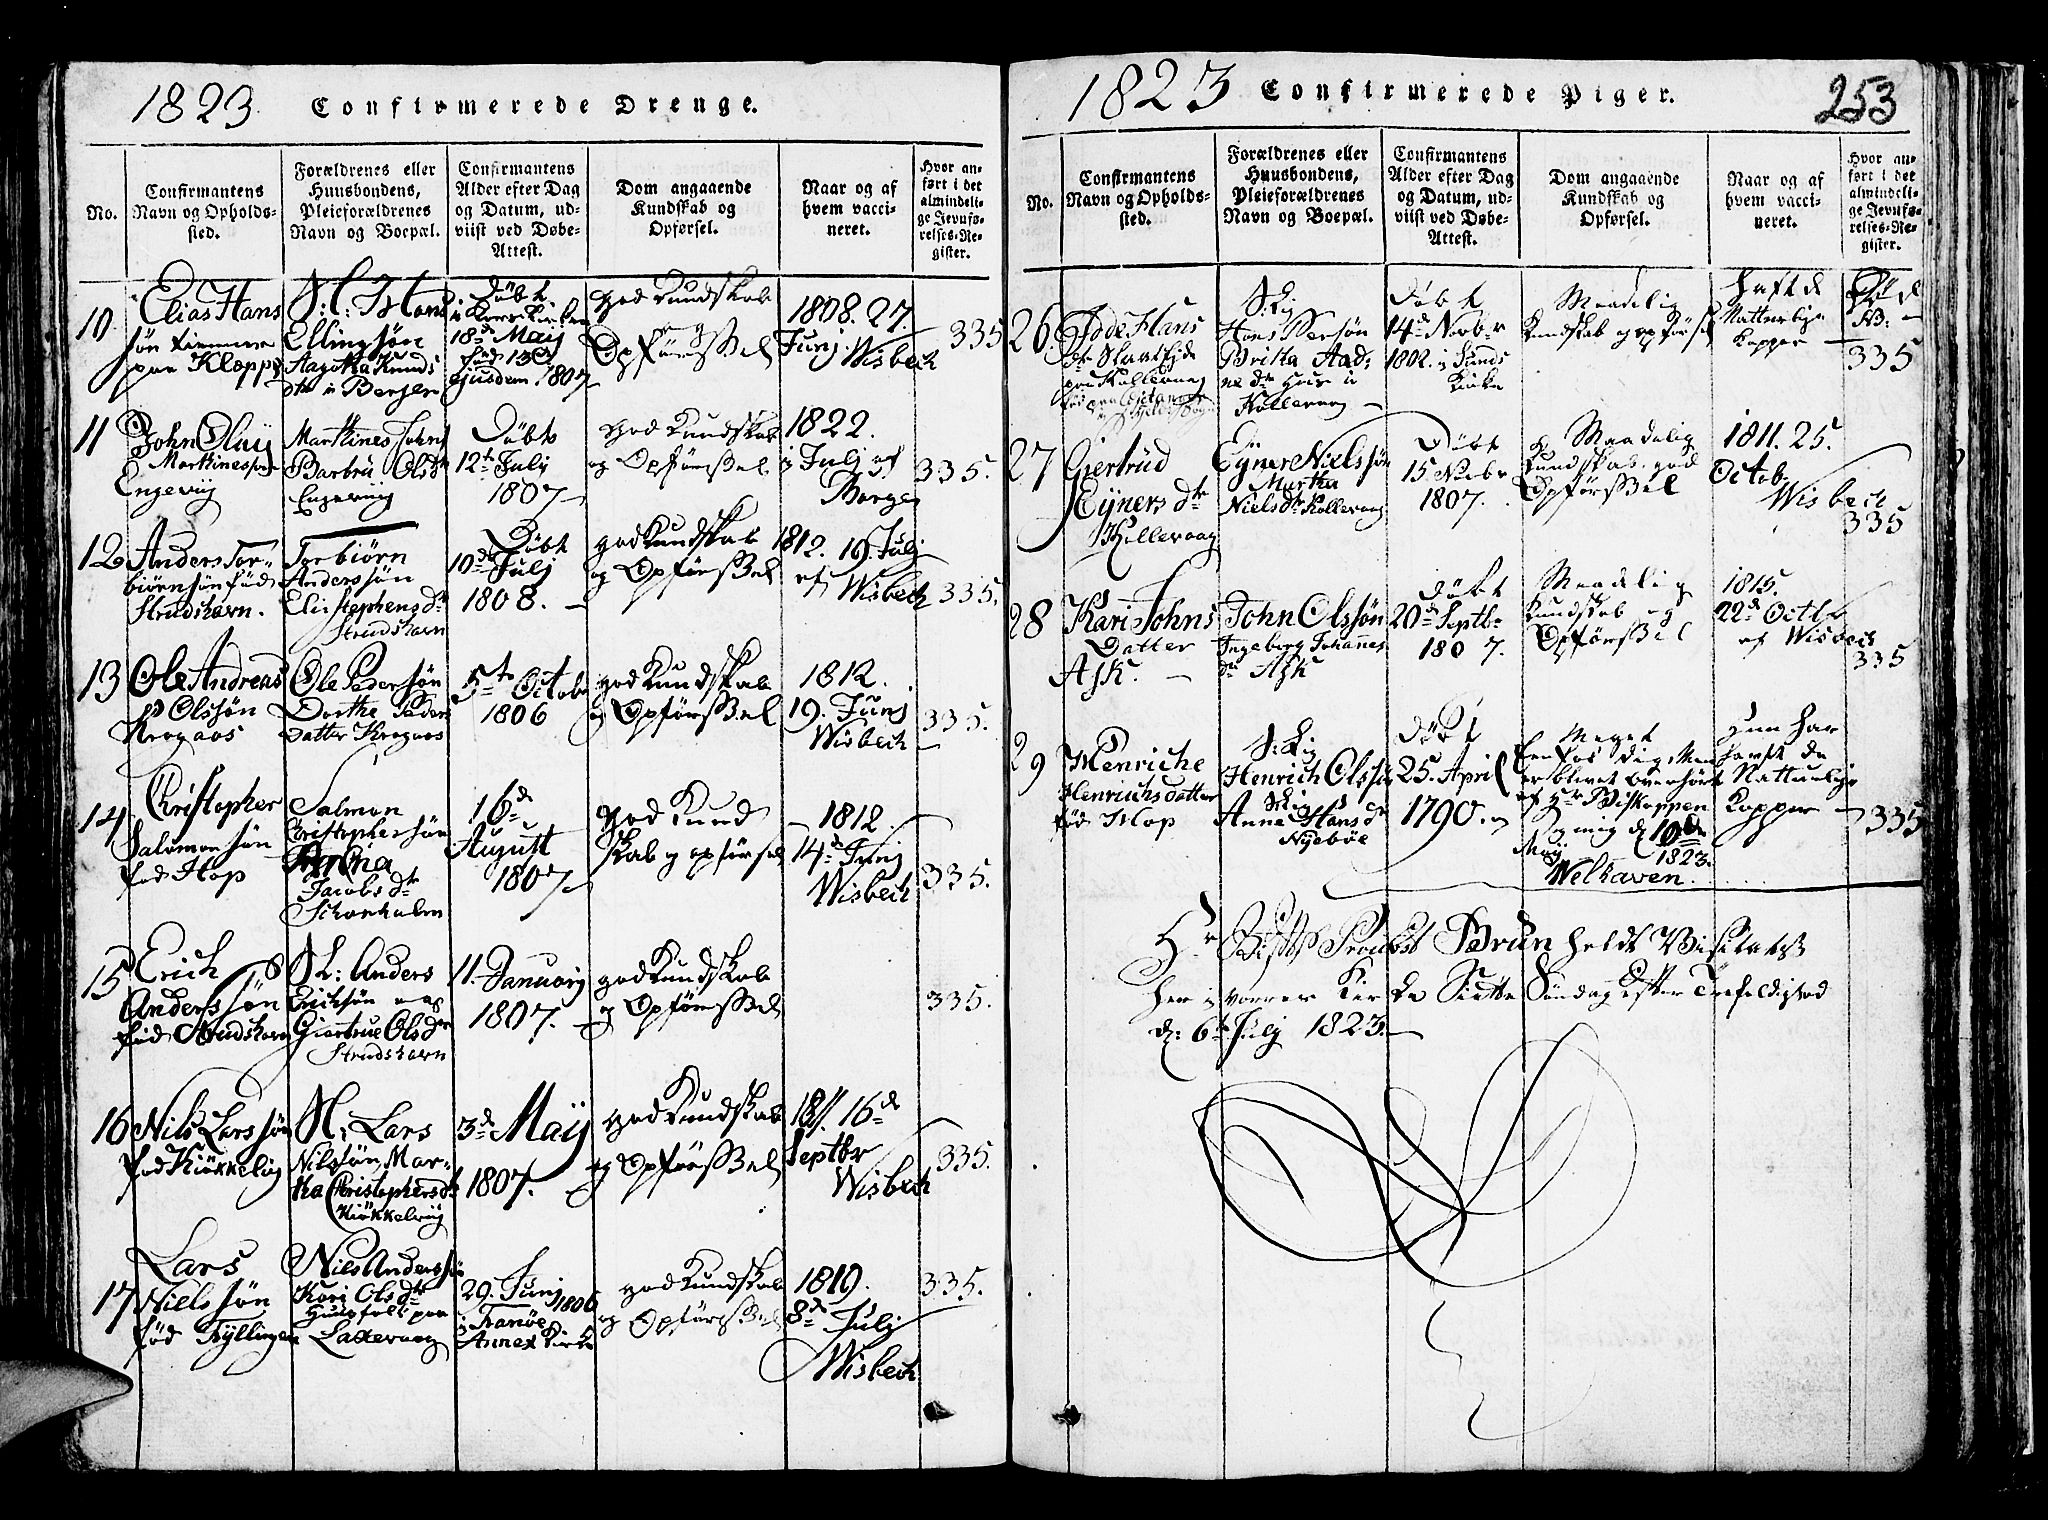 1823. Confirmerede Drenge.
No.
Confirmantens
Navn og Opholds-
sted.
Forældrenes eller
Huusbondens,
Pleieforældrenes
Navn og Boepæl.
Confirmantens
Alder efter Dag
og Datum, ud-
viist ved Døbe-
Attest.
Dom angaaende
Kundskab og
Opførsel.
Naar og af
hvem vacci-
neret.
Hvor an-
ført i det
almindeli-
ge Jevnfø-
relses-Re-
gister.
10.
Elias Hans
søn
paa Klopp
S: Hans
Ellingsøn
Aagotha Knuds
dtr i Bergen
Døbt
i Korskirken
18de Maij
fød 13de
ejusdem 1807
god Kundskab
og
Opførssel
1808. 27.
Junj. Wisbech
335
11
John Oluf
Martinessøn
Engevig
Martines Johns
Barbru Olsdr
Engevig
Døbt
12te July
1807
god Kundskab
og Opførssel
1822.
i Julj af
Borge
335.
12
Anders Tor-
biørnsøn fød
Strudshavn.
Torbiørn
Anderssøn
Eli Stephensdr
Strudshavn
Døbt
10de Julj
1808.
god Kundskab
og Opførssel
1812. 19. Julj
af Wisbech
335.
13
Ole Andreas
Olssøn
Krogaas
Ole Pedersøn
Dorthe Peders
Datter Krogaas
5te Octobr
1806
god Kundskab
og Opførssel
1812.
19. Junj
Wisbech
335.
14
Christopher
Salomonsøn
fød Hop
Salmon
Christophersøn
Jacobs dtr
Schonholm
16de
August
1807
god Kund
skab og opførsel
1812.
14de Junj
Wisbech
335.
15
Erich
Anderssøn
fød Strudshavn
S: Anders
Ericksøn og
Giertrue Olsdr
Strudshavn
11. Januarj
1807.
god Kundskab
og Opførssel
335.
16
Nils Larssøn
fød Kiøkkelvig
S: Lars
Nilssøn Mar-
tha Christophersdr
Kiøkkelvig
3de Maij
1807.
god Kundskab
og Opførssel
1811. 16de
Septbr
Wisbech
335.
17
Lars
Nielssøn
fød Tyllingen
Nils Anderssøn
Kari Olsdtr
Huusfolk paa
Laxevaag
29. Junj 1806
i Fanøe
Annex Kirke
god Kundskab
og Opførssel
1819.
8de Julj
Wisbech
335.
1823 Confirmerede Piger. 253
No.
Confirmantens
Navn og Opholds-
sted.
Forældrenes eller
Huusbondens,
Pleieforældrenes
Navn og Boepæl.
Confirmantens
Alder efter Dag
og Datum, ud-
viist ved Døbe-
Attest.
Dom angaaende
Kundskab og
Opførsel.
Naar og af
hvem vacci-
neret.
Hvor an-
ført i det
almindeli-
ge Jevnfø-
relses-Re-
gister.
26
Hans
dr
paa Kollevaag
S: Sig
Hans Persøn
Britha Aad-
ne dr
Kollevaag
Døbt
14de Novbr
1802. i Sunds
Kirke
Maadelig
Kundskab og opførsel
haft de
Naturlige
Kopper
335
27
Giertrüd
Eyners dtr
Kollevaag
Eyner Nielssøn
Martha
Nielsdr Kollevaag
Døbt
15 Novbr
1807.
Maadelig
Kundskab. god
Opførssel
1811. 25.
Octob.
Wisbech
335
28
Kari Johns
Datter
Ask.
John Olssøn
Ingeborg Johannes
dr Ask
Døbt
20de Septbr
1807.
Maadelig
Kundskab og
Opførssel
1815.
22de Octbr
af Wisbech
335
29
Henriche
Henrichsdatter
fød Hop
S: Sig
Henrich Olssøn
S: Sig
Anne Hansdr
Nyebøe
Døbt
25. April
1790.
Meget
Eenfoldig, Men
er blevet overhørt
af Hr Biskoppen
og mig d 10de
Maij 1823.
Welhaven.
Hun har
havt de
Naturlige
Kopper
335
Hr Provst Brun holdt Visitats
her i vorres Kirke Siette Søndag efter Trefoldighed
d: 6te Julj 1823.